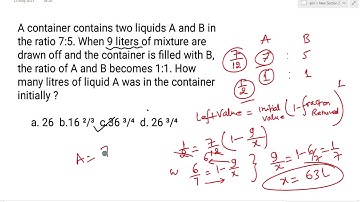 A container contains two liquids A and B in
the ratio 7:5. When 9 liters of mixture are
drawn off and the container is filled with B,
the ratio of A and B becomes 1:1. How
many litres of liquid A was in the container
initially ?
a. 26 b.16 ²/₃ c.36 ³/₄ d. 26 ³/₄
A =
A B
7/12 7 : 5
1/2 1 : 1
Left value = initial value (1 - fraction Removed)
1/2 = 7/12 (1 - 9/x)
6/7 = 1 - 9/x
9/x = 1 - 6/7 = 1/7
x = 63L